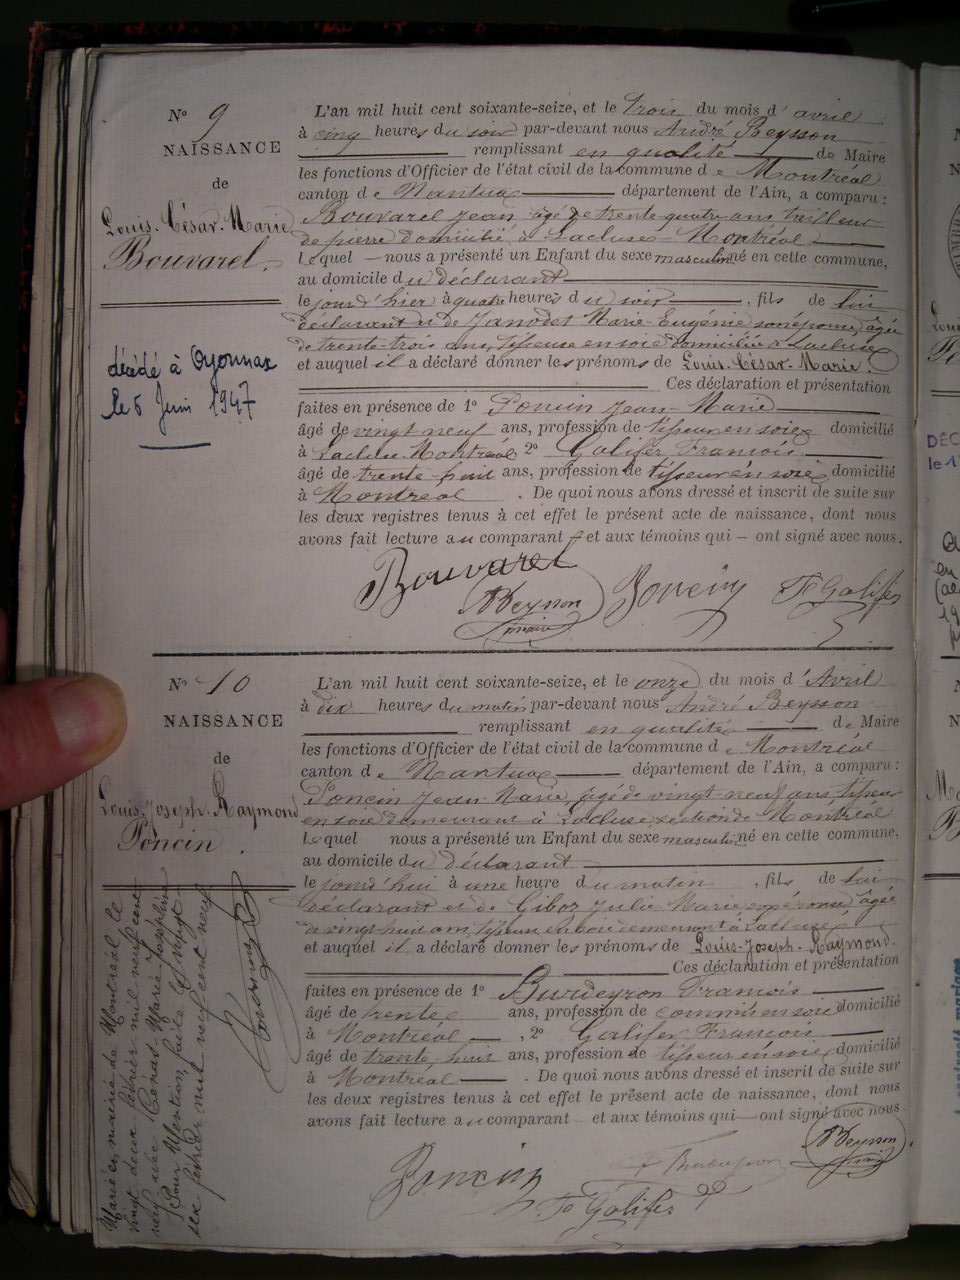 N° 9
NAISSANCE
de
Louis-César-Marie
Bouvarel.
décédé à Oyonnax
le 5 Juin 1947
L'an mil huit cent soixante-seize, et le trois du mois d'avril
à cinq heures du soir par-devant nous André Beysson
remplissant en qualité de Maire
les fonctions d'Officier de l'état civil de la commune de Montréal
canton de Nantua département de l'Ain, a comparu :
Bouvarel Jean âgé de trente-quatre ans tailleur
de pierre domicilié à Lacluse-Montréal
Lequel nous a présenté un Enfant du sexe masculin né en cette commune,
au domicile du déclarant
le jour d'hier à quatre heures du soir, fils de lui
déclarant et de Janodet Marie-Eugénie son épouse, âgée
de trente-trois ans, tisseuse en soie domiciliée à Lacluse
et auquel il a déclaré donner les prénoms de Louis-César-Marie.
Ces déclaration et présentation
faites en présence de 1° Poncin Jean-Marie
âgé de vingt neuf ans, profession de tisseur en soie domicilié
à Lacluse-Montréal 2° Galifer Francois
âgé de trente-huit ans, profession de tisseur en soie domicilié
à Montréal. De quoi nous avons dressé et inscrit de suite sur
les deux registres tenus à cet effet le présent acte de naissance, dont nous
avons fait lecture au comparant et aux témoins qui – ont signé avec nous.
Bouvarel
ABeysson
maire
Poncin
Fs Galifer
N° 10
NAISSANCE
de
Louis-Joseph-Raymond
Poncin.
Marié en mairie de Montréal le
vingt deux février mil neuf cent
neuf avec Marie Joséphine
Pour Mention faite le vingt
six février mil neuf cent neuf
L'an mil huit cent soixante-seize, et le onze du mois d'Avril
à dix heures du matin par-devant nous André Beysson
remplissant en qualité de Maire
les fonctions d'Officier de l'état civil de la commune de Montréal
canton de Nantua département de l'Ain, a comparu :
Poncin Jean-Marie, âgé de vingt-neuf ans, tisseur
en soie demeurant à Lacluse, section de Montréal
Lequel nous a présenté un Enfant du sexe masculin né en cette commune,
au domicile du déclarant
le jourd'hui à une heure du matin, fils de lui
déclarant et de Giboz Julie Marie son épouse âgée
de vingt huit ans, tisseuse en soie demeurant à Lacluse
et auquel il a déclaré donner les prénoms de Louis-Joseph-Raymond.
Ces déclaration et présentation
faites en présence de 1° Burdeyron Francois
âgé de trente ans, profession de commis en soie domicilié
à Montréal, 2° Galifer Francois
âgé de trente huit ans, profession de tisseur en soie domicilié
à Montréal. De quoi nous avons dressé et inscrit de suite sur
les deux registres tenus à cet effet le présent acte de naissance, dont nous
avons fait lecture au comparant et aux témoins qui ont signé avec nous
ABeysson
maire
Poncin
Fs Galifer